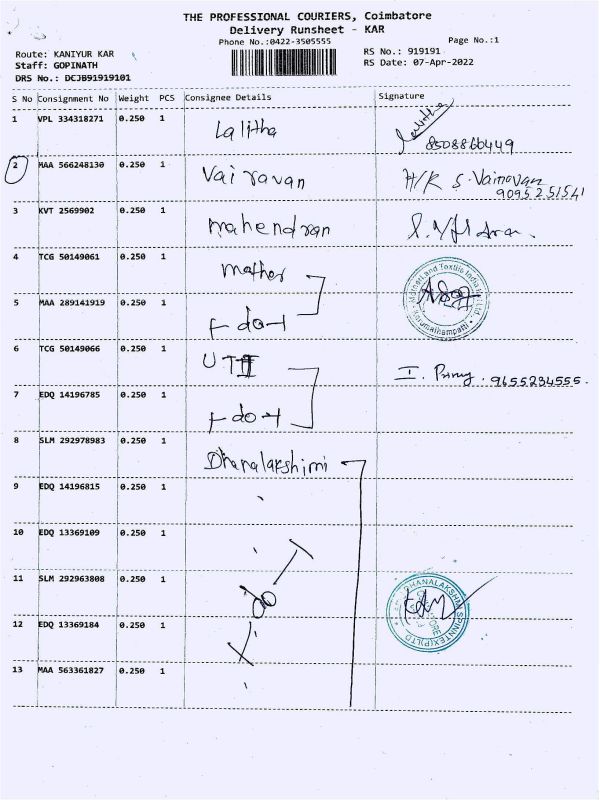 THE PROFESSIONAL COURIERS, Coimbatore
Delivery Runsheet - KAR
Phone No.:0422-3505555 Page No.:1
Route: KANIYUR KAR RS No.: 919191
Staff: GOPINATH RS Date: 07-Apr-2022
DRS No.: DCJB91919101
S No Consignment No Weight PCS Consignee Details Signature
1 VPL 334318271 0.250 1 Lalitha
8508860449
2 MAA 566248130 0.250 1 Vairavan H/K S. Vairavan
9095251541
3 KVT 2569902 0.250 1 Mahendran
4 TCG 50149061 0.250 1 Mother
5 MAA 289141919 0.250 1 do
6 TCG 50149066 0.250 1 UTT I. 9655234555.
7 EDQ 14196785 0.250 1 do
8 SLM 292978983 0.250 1 Dhanalakshimi
9 EDQ 14196815 0.250 1
10 EDQ 13369109 0.250 1
11 SLM 292963808 0.250 1 do
12 EDQ 13369184 0.250 1
13 MAA 563361827 0.250 1